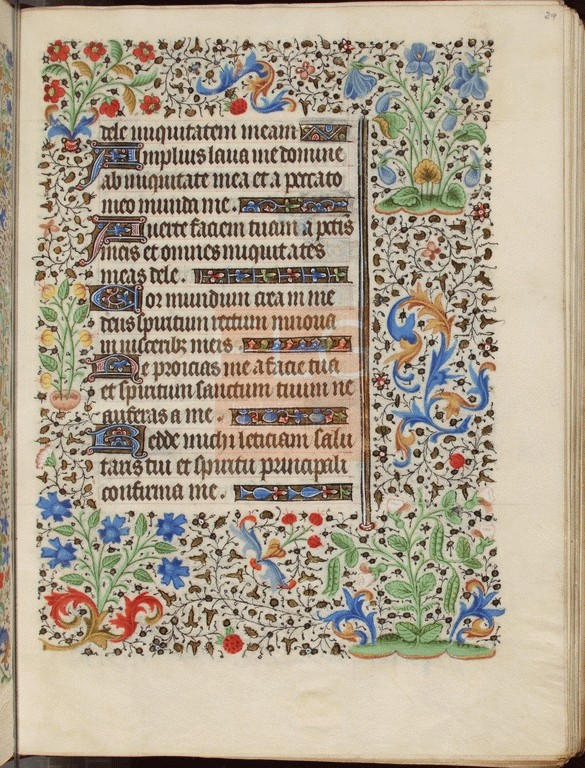 29
dele iniquitatem meam
Amplius laua me domine
ab iniquitate mea et a peccato
meo munda me.
Auerte faciem tuam a pctis
meis et omnes iniquitates
meas dele.
Cor mundum crea in me
deus spiritum rectum innoua
in uisceribz meis
Ne proicias me a facie tua
et spiritum sanctum tuum ne
auferas a me.
Redde michi leticiam salu
taris tui et spiritu principali
confirma me.